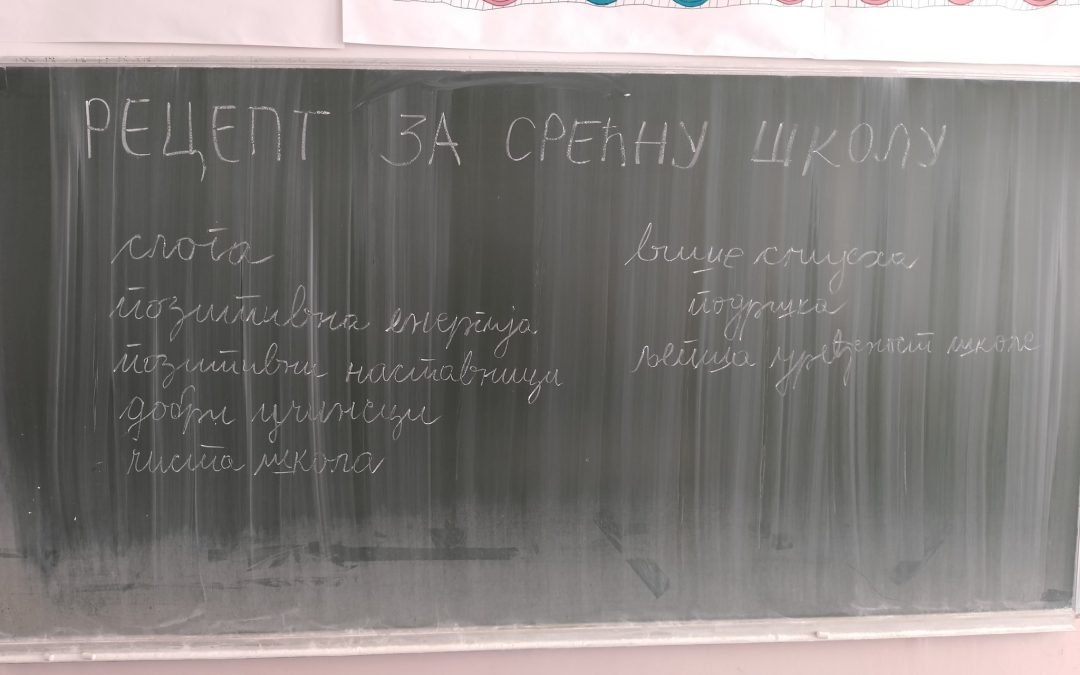 РЕЦЕПТ ЗА СРЕЋНУ ШКОЛУ
слога
позитивна енергија
позитивни наставници
добри ученици
чиста школа
више спусха
подршка
љепша уређеност школе